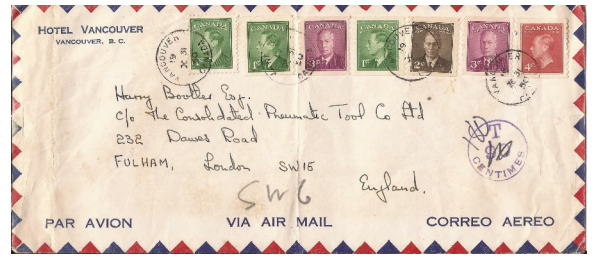 HOTEL VANCOUVER
VANCOUVER, B. C.
CANADA CANADA CANADA CANADA CANADA CANADA CANADA
3¢ 1¢ 2¢ 3¢ 4¢
VANCOUVER
VANCOUVER
Harry Boutler Esq.
c/o The Consolidated Pneumatic Tool Co Ltd
232 Dawes Road
FULHAM, London SW15
England.
SW6
T
CENTIMES
PAR AVION VIA AIR MAIL CORREO AEREO